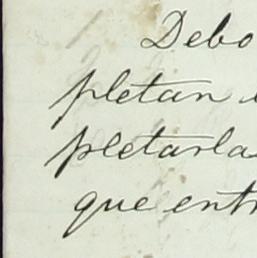 Debo
pletan
pletarla
que entr